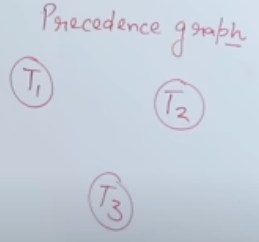 Precedence graph
T1
T2
T3